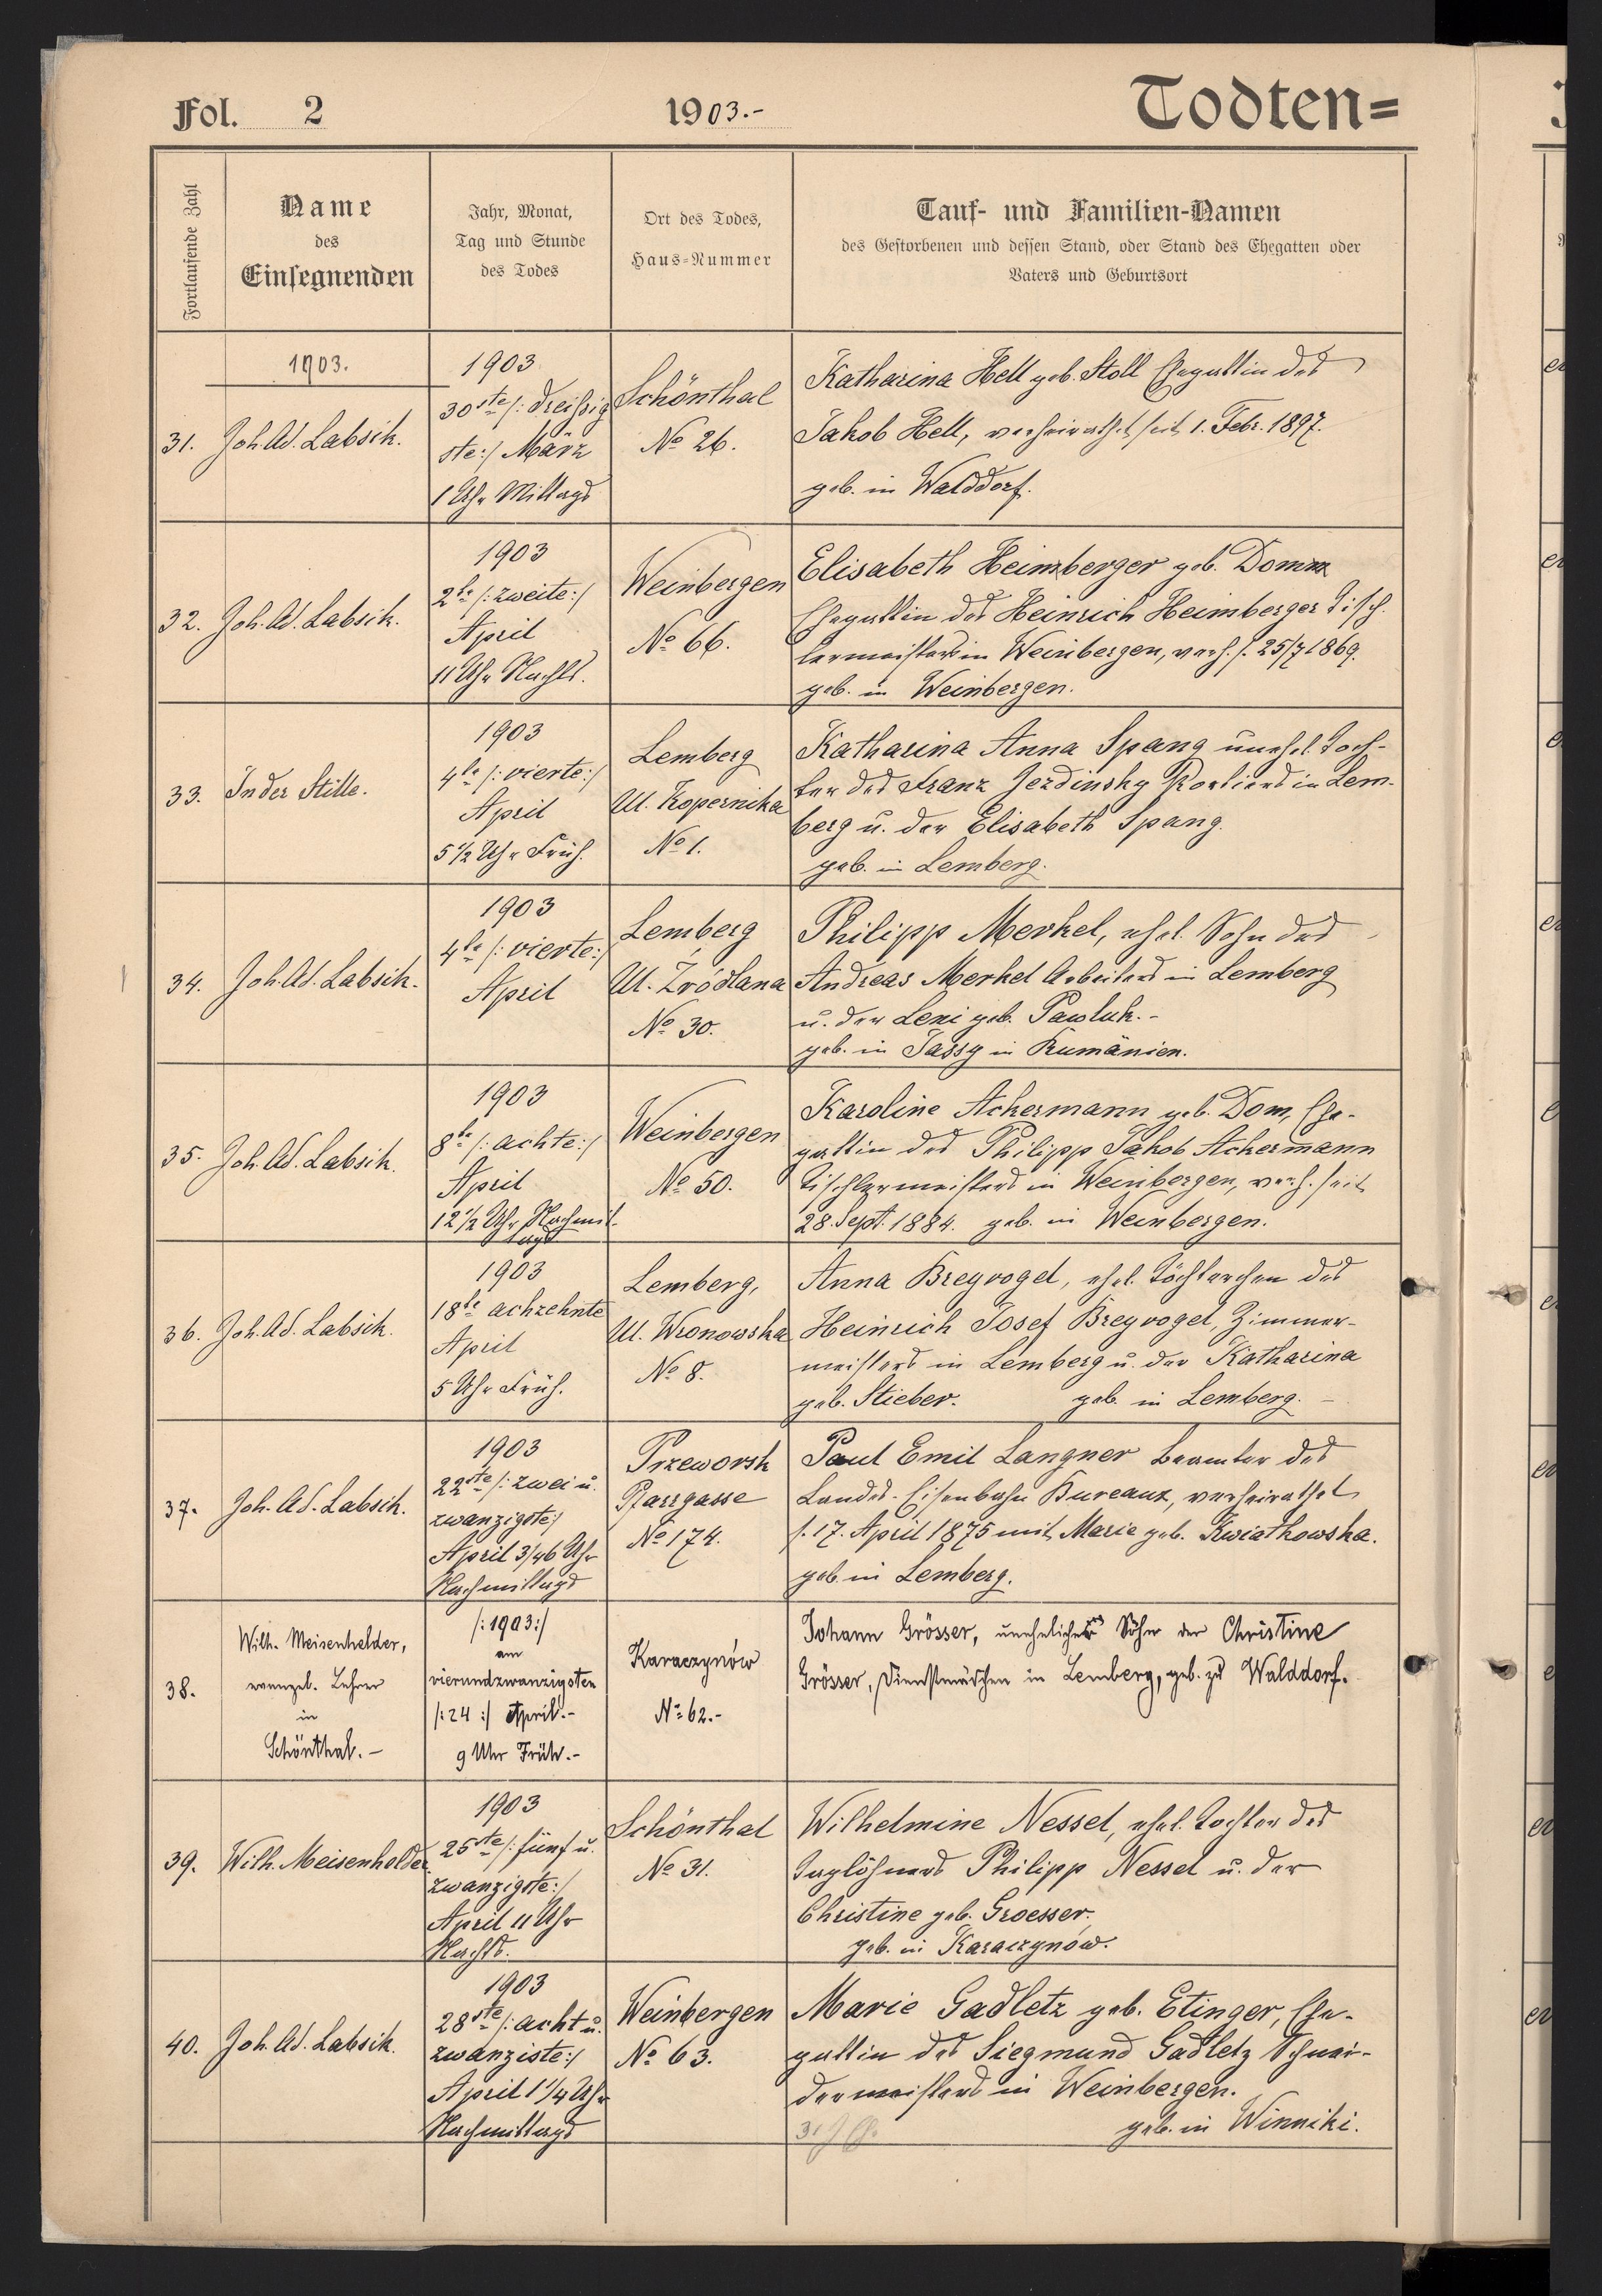 Fol. 2
1903.-
Todten=
Fortlaufende Zahl
Name
des
Einsegnenden
Jahr, Monat,
Tag und Stunde
des Todes
Ort des Todes,
Haus=Nummer
Tauf- und Familien-Namen
des Gestorbenen und dessen Stand, oder Stand des Ehegatten oder
Vaters und Geburtsort
1903.
31.
Joh. Ad. Labsik.
1903
30ste /: dreißig
ste:/ März
1 Uhr Mittags
Schönthal
No 26.
Katharina Hell geb. Stoll Ehegattin des
Jakob Hell, verheirathet seit 1. Febr. 1897.
geb. in Walddorf.
32.
Joh. Ad. Labsik.
1903
2te /: zweite:/
April
11 Uhr Nachts.
Weinbergen
No 66.
Elisabeth Heimberger geb. Domm
Ehegattin des Heinrich Heimberger Tisch-
lermeisters in Weinbergen, verh. s. 25/7 1869.
geb. in Weinbergen.
33.
In der Stille.
1903
4te /: vierte:/
April
5 1/2 Uhr Früh.
Lemberg
Ul. Kopernika
No 1.
Katharina Anna Spang unehel. Toch-
ter des Franz Jezdinsky Portiers in Lem-
berg u. der Elisabeth Spang.
geb. in Lemberg.
34.
Joh. Ad. Labsik.
1903
4te /: vierte:/
April
Lemberg
Ul. Źródlana
No 30.
Philipp Merkel, ehel. Sohn des
Andreas Merkel Arbeiters in Lemberg
u. der Lexi geb. Pawluk.-
geb. in Jassy in Rumänien.
35.
Joh. Ad. Labsik.
1903
8te /: achte:/
April
12 1/2 Uhr Nachmit-
tags
Weinbergen
No 50.
Karoline Ackermann geb. Dom, Ehe-
gattin des Philipp Jakob Ackermann
Tischlermeisters in Weinbergen, verh. seit
28. Sept. 1884. geb. in Weinbergen.
36.
Joh. Ad. Labsik.
1903
18te achzehnte
April
5 Uhr Früh.
Lemberg,
Ul. Wronowska
No 8.
Anna Breyvogel, ehel. Töchterchen des
Heinrich Josef Breyvogel, Zimmer-
meisters in Lemberg u. der Katharina
geb. Stieber. geb. in Lemberg. -
37.
Joh. Ad. Labsik.
1903
22ste /: zwei u.
zwanzigste:/
April 3/4 6 Uhr
Nachmittags
Przeworsk
Pfarrgasse
No 174.
Paul Emil Langner Beamter des
Landes-Eisenbahn Bureaux, verheirathet
s. 17. April 1875 mit Marie geb. Kwiatkowska.
geb. in Lemberg.
38.
Wilh. Meisenhelder,
evangel. Lehrer
in
Schönthal. -
/: 1903:/
am
vierundzwanzigsten
/: 24 :/ April.-
9 Uhr Früh.-
Karaczynów
No 62.-
Johann Grösser, unehelicher Sohn der Christine
Grösser, Dienstmädchen in Lemberg, geb. zu Walddorf.
39.
Wilh. Meisenhelder.
1903
25ste /: fünf u.
zwanzigste:/
April 11 Uhr
Nachts.
Schönthal
No 31.
Wilhelmine Nessel, ehel. Tochter des
Taglöhners Philipp Nessel u. der
Christine geb. Groesser.
geb. in Karaczynów.
40.
Joh. Ad. Labsik.
1903
28ste /: acht u.
zwanziste:/
April 1 1/4 Uhr
Nachmittags
Weinbergen
No 63.
Marie Gadletz geb. Etinger, Ehe-
gattin des Siegmund Gadletz Schnei-
dermeisters in Weinbergen.
geb. in Winniki.